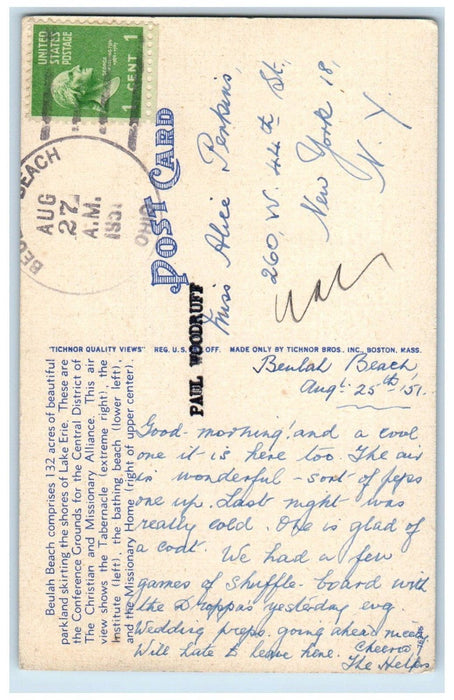 UNITED
STATES
POSTAGE
GEORGE
WASHINGTON
1 CENT 1
BEULAH BEACH
AUG
27
A.M.
1951
OHIO
POST CARD
PAUL WOODRUFF
Miss Alice Perkins,
260, W. 44th St.,
New York, 18,
N. Y.
"TICHNOR QUALITY VIEWS" REG. U.S. OFF. MADE ONLY BY TICHNOR BROS., INC., BOSTON, MASS.
Beulah Beach comprises 132 acres of beautiful
parkland skirting the shores of Lake Erie. These are
the Conference Grounds for the Central District of
The Christian and Missionary Alliance. This air
view shows the Tabernacle (extreme right), the
Institute (left), the bathing beach (lower left),
and the Missionary Home (right of upper center).
Beulah Beach,
Augt. 25th '51.
Good-morning! and a cool
one it is here too. The air
is wonderful - sort of peps
one up. Last night was
really cold. One is glad of
a coat. We had a few
games of shuffle-board with
the Droppas yesterday evg.
Wedding preps. going ahead nicely
Will hate to leave here. Cheerio,
The Helpers